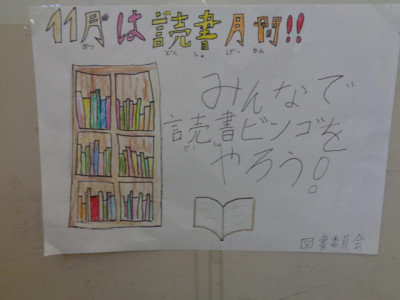 11月は読書月間!!
がつ どくしょ げっかん
みんなで
読書ビンゴを
やろう!
図書委員会